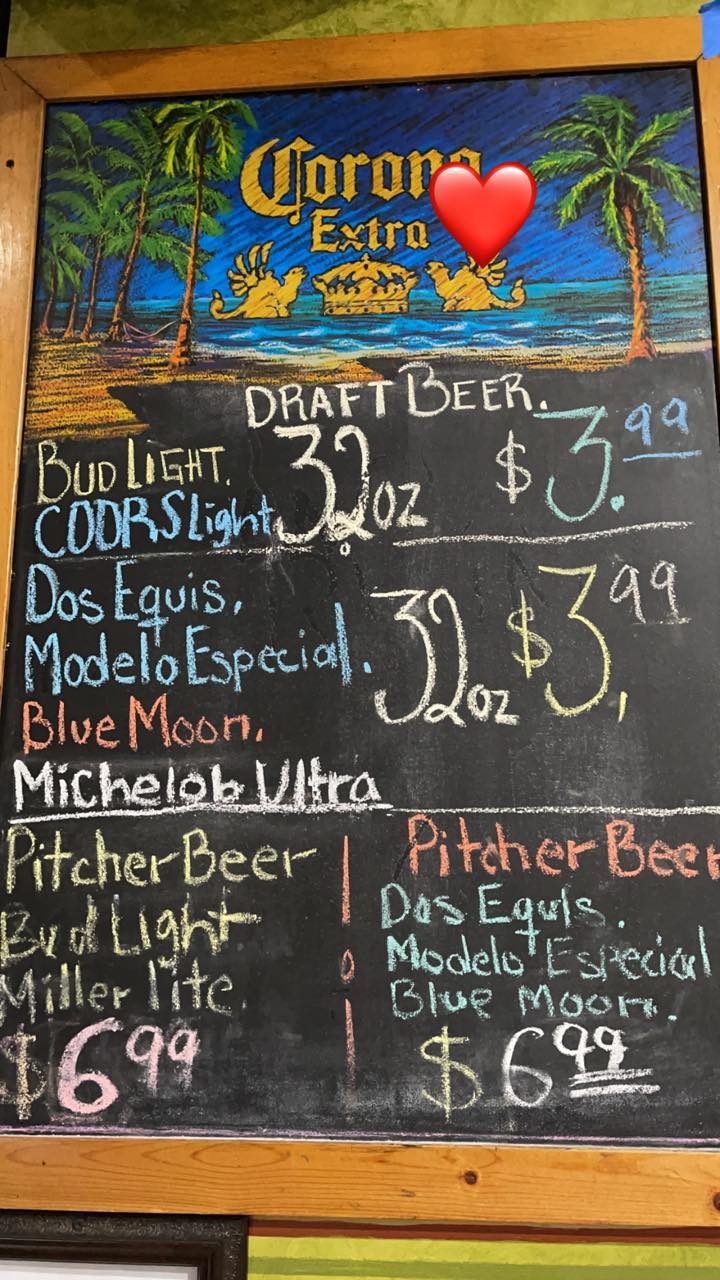 Corona
Extra
DRAFT BEER.
BUD LIGHT.
COORS Light
32oz
$3.99
Dos Equis.
Modelo Especial.
Blue Moon.
Michelob Ultra
32oz
$3,99
Pitcher Beer
Bud Light
Miller lite
$699
Pitcher Beer
Dos Equis.
Modelo Especial
Blue Moon.
$699